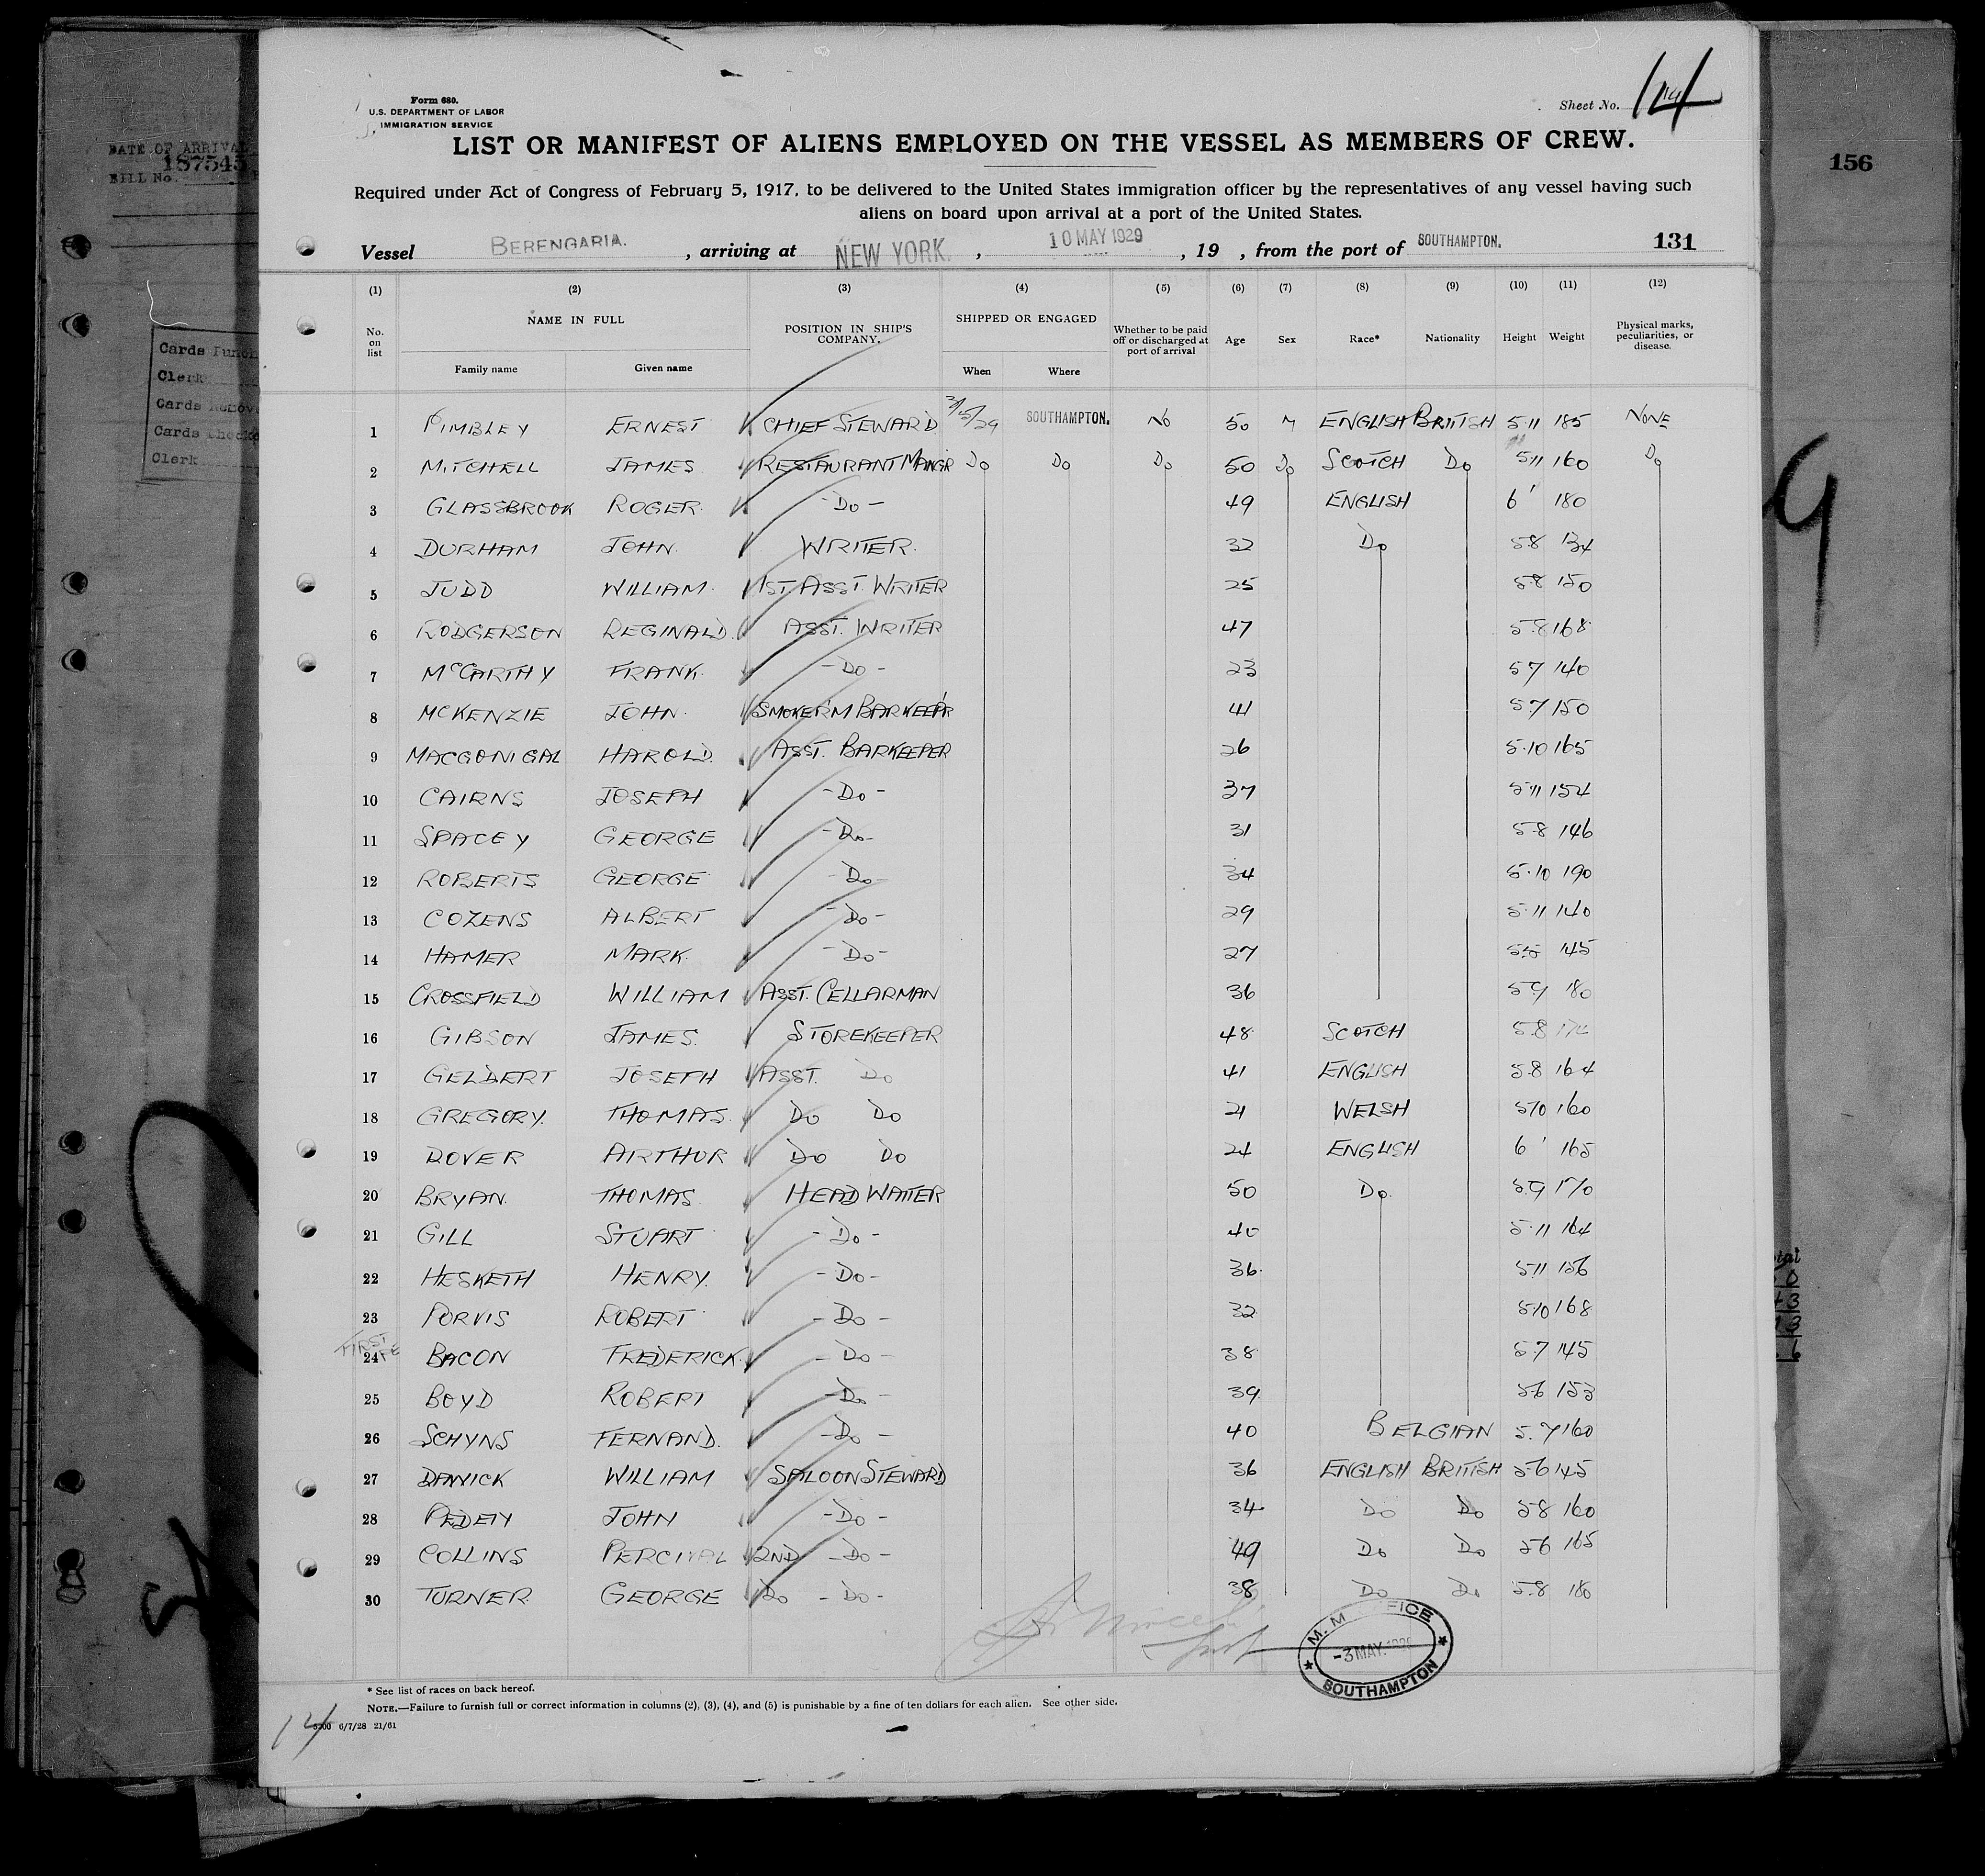 Form 680.
U.S. DEPARTMENT OF LABOR
IMMIGRATION SERVICE
Sheet No. 14
DATE OF ARRIVAL
187545
BILL No.
156
LIST OR MANIFEST OF ALIENS EMPLOYED ON THE VESSEL AS MEMBERS OF CREW.
Required under Act of Congress of February 5, 1917, to be delivered to the United States immigration officer by the representatives of any vessel having such
aliens on board upon arrival at a port of the United States.
Vessel BERENGARIA. , arriving at NEW YORK. , 10 MAY 1929 , 19 , from the port of SOUTHAMPTON. 131
(1) (2) (3) (4) (5) (6) (7) (8) (9) (10) (11) (12)
No. on list NAME IN FULL Family name Given name POSITION IN SHIP'S COMPANY. SHIPPED OR ENGAGED When Where Whether to be paid off or discharged at port of arrival Age Sex Race* Nationality Height Weight Physical marks, peculiarities, or disease.
Cards
Clerk
Cards
Cards
Clerk
1 PIMBLEY ERNEST CHIEF STEWARD 3/5/29 SOUTHAMPTON. NO 50 M ENGLISH BRITISH 5.11 185 NONE
2 MITCHELL JAMES RESTAURANT MANGR Do Do Do 50 Do SCOTCH Do 5.11 160 Do
3 GLASSBROOK ROGER. - Do - 49 ENGLISH 6' 180
4 DURHAM JOHN. WRITER. 32 Do 5.8 134
5 JUDD WILLIAM. 1ST. ASST. WRITER 25 5.8 150
6 RODGERSON REGINALD. ASST. WRITER 47 5.8 168
7 McCARTHY FRANK. - Do - 23 5.7 140
8 McKENZIE JOHN. SMOKER'M BARKEEP'R 41 5.7 150
9 MACGONIGAL HAROLD. ASST. BARKEEPER 26 5.10 165
10 CAIRNS JOSEPH - Do - 37 5.11 154
11 SPACEY GEORGE - Do - 31 5.8 146
12 ROBERTS GEORGE - Do - 34 5.10 190
13 COZENS ALBERT - Do - 29 5.11 140
14 HAMER MARK. - Do - 27 145
15 CROSSFIELD WILLIAM ASST. CELLARMAN 36 5.9 180
16 GIBSON JAMES. STOREKEEPER 48 SCOTCH 5.8
17 GELDERT JOSEPH ASST. Do 41 ENGLISH 5.8 164
18 GREGORY. THOMAS. Do Do 21 WELSH 5.10 160
19 DOVER ARTHUR Do Do 24 ENGLISH 6' 165
20 BRYAN. THOMAS. HEAD WAITER 50 Do. 5.9 170
21 GILL STUART - Do - 40 5.11 164
22 HESKETH HENRY. - Do - 36. 5.11 156
23 PURVIS ROBERT - Do - 32 5.10 168
FIRST
24 BACON FREDERICK. - Do - 38 5.7 145
25 BOYD ROBERT - Do - 39 5.6 153
26 SCHYNS FERNAND. - Do - 40 BELGIAN 5.7 160
27 WILLIAM SALOON STEWARD 36 ENGLISH BRITISH 5.6 145
28 JOHN - Do - 34 Do Do 5.8 160
29 COLLINS PERCIVAL 2ND - Do - 49 Do Do 5.6 165
30 TURNER GEORGE Do - Do - 38 Do Do 5.8 180
-3 MAY.
SOUTHAMPTON
* See list of races on back hereof.
NOTE.—Failure to furnish full or correct information in columns (2), (3), (4), and (5) is punishable by a fine of ten dollars for each alien. See other side.
14
6/7/28 21/61